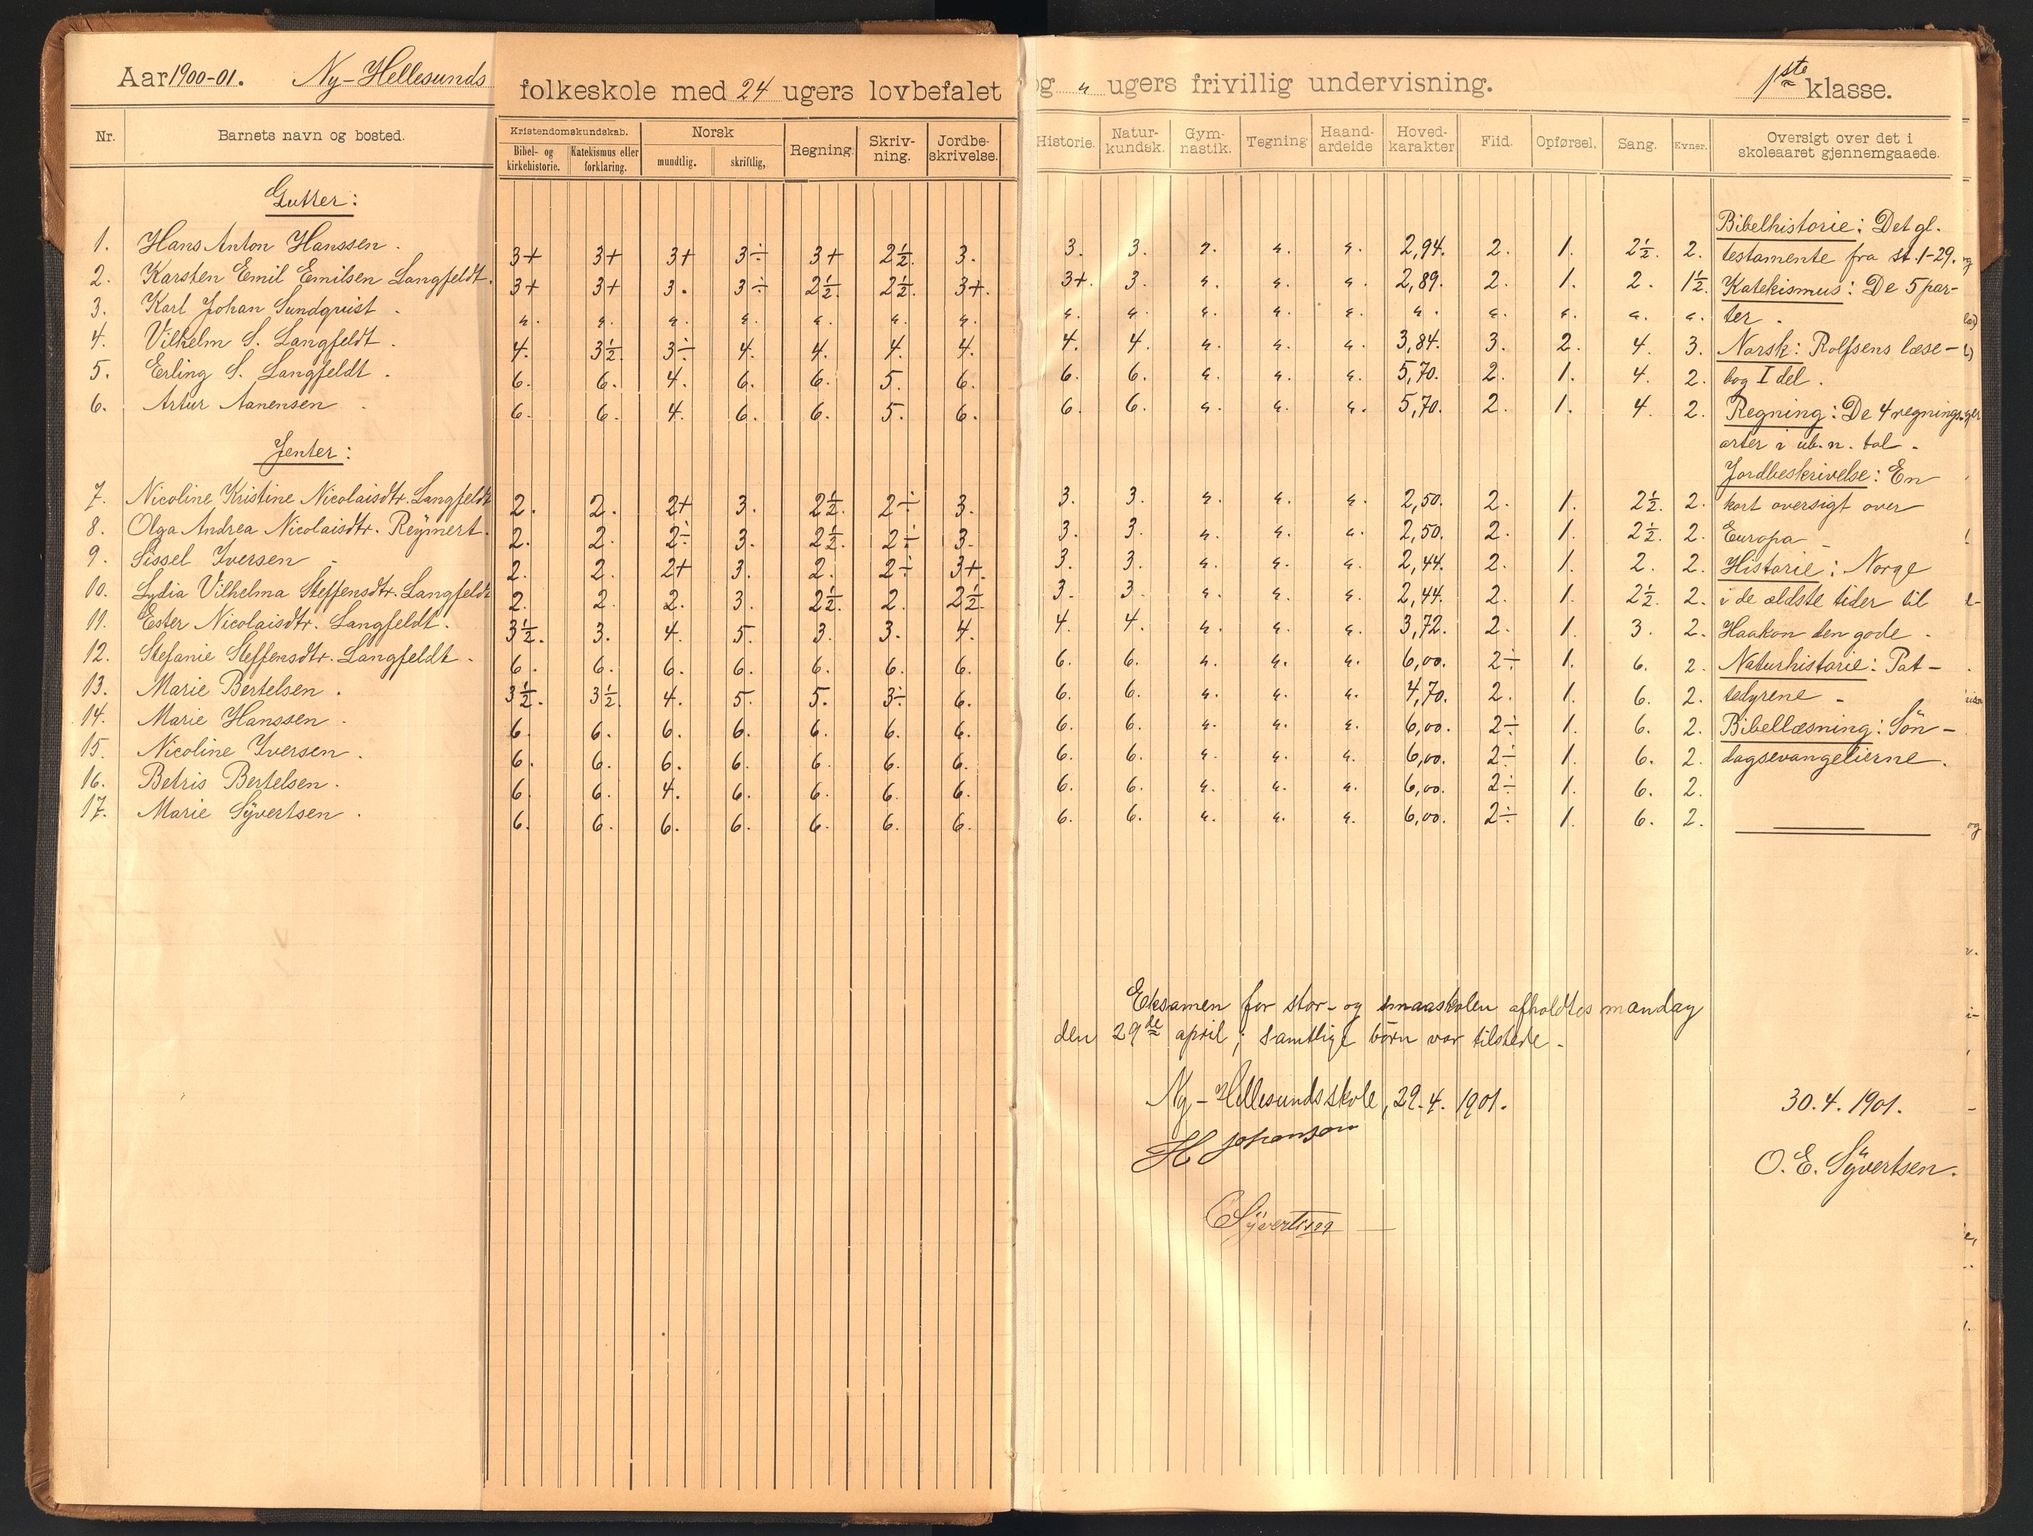 Aar 1900-01. Ny-Hellesunds folkeskole med 24 ugers lovbefalet og " ugers frivillig undervisning. 1ste klasse.
Nr. Barnets navn og bosted. Kristendomskundskab. Norsk Regning. Skriv-ning. Jordbe-skrivelse. Historie. Natur-kundsk. Gym-nastik. Tegning Haand-arbeide Hoved-karakter Flid. Opførsel. Sang. Evner. Oversigt over det i skoleaaret gjennemgaaede.
Bibel- og kirkehistorie. Katekismus eller forklaring. mundtlig. skriftlig,
Gutter:
1. Hans Anton Hanssen. 3+ 3+ 3+ 3÷ 3+ 2½. 3. 3. 3. " " " 2,94. 2. 1. 2½. 2.
2. Karsten Emil Emilsen Langfeldt. 3+ 3+ 3. 3÷ 2½. 2½. 3+. 3+. 3. " " " 2,89. 2. 1. 2. 1½.
3. Karl Johan Sundqvist. " " " " " " " " " " " " " " " " "
4. Vilhelm S. Langfeldt. 4. 3½. 3÷ 4. 4. 4. 4. 4. 4. " " " 3,84. 3. 2. 4. 3.
5. Erling S. Langfeldt. 6. 6. 4. 6. 6. 5. 6. 6. 6. " " " 5,70. 2. 1. 4. 2.
6. Artur Aanensen. 6. 6. 4. 6. 6. 5. 6. 6. 6. " " " 5,70. 2. 1. 4. 2.
Jenter:
7. Nicoline Kristine Nicolaisdtr. Langfeldt 2. 2. 2+ 3. 2½. 2÷ 3. 3. 3. " " " 2,50. 2. 1. 2½. 2.
8. Olga Andrea Nicolaisdtr. Reÿmert. 2. 2. 2÷ 3. 2½. 2÷ 3. 3. 3. " " " 2,50. 2. 1. 2½. 2.
9. Sissel Iversen - 2. 2. 2+ 3. 2. 2÷ 3+. 3. 3. " " " 2,44. 2. 1. 2. 2.
10. Lydia Vilhelma Steffensdtr. Langfeldt 2. 2. 2. 3. 2½. 2. 2½. 3. 3. " " " 2,44. 2. 1. 2½. 2.
11. Ester Nicolaisdtr. Langfeldt. 3½. 3. 4. 5. 3. 3. 4. 4. 4. " " " 3,72. 2. 1. 3. 2.
12. Stefanie Steffensdtr. Langfeldt. 6. 6. 6. 6. 6. 6. 6. 6. 6. " " " 6,00. 2÷ 1. 6. 2.
13. Marie Bertelsen. 3½. 3½. 4. 5. 5. 3÷ 6. 6. 6. " " " 4,70. 2. 1. 6. 2.
14. Marie Hanssen. 6. 6. 6. 6. 6. 6. 6. 6. 6. " " " 6,00. 2÷ 1. 6. 2.
15. Nicoline Iversen. 6. 6. 6. 6. 6. 6. 6. 6. 6. " " " 6,00. 2÷ 1. 6. 2.
16. Betris Bertelsen. 6. 6. 4. 6. 6. 6. 6. 6. 6. " " " 6,00. 2÷ 1. 6. 2.
17. Marie Sÿvertsen. 6. 6. 6. 6. 6. 6. 6. 6. 6. " " " 6,00. 2÷ 1. 6. 2.
Bibelhistorie: Det gl.
testamente fra st. 1-29.
Katekismus: De 5 par-
ter.
Norsk: Rolfsens læse-
bog I del.
Regning: De 4 regnings-
arter i ub. n. tal.
Jordbeskrivelse: En
kort oversigt over
Europa -
Historie: Norge
i de ældste tider til
Haakon den gode.
Naturhistorie: Pat-
tedyrene -
Bibellæsning: Søn-
dagsevangelierne.
Eksamen for stor- og smaaskolen afholdtes mandag
den 29de april; samtlige børn var tilstede.
Ny-Hellesunds skole, 29.4.1901.
H Johanson
O Sÿvertsen
30.4.1901.
O. E. Sÿvertsen.